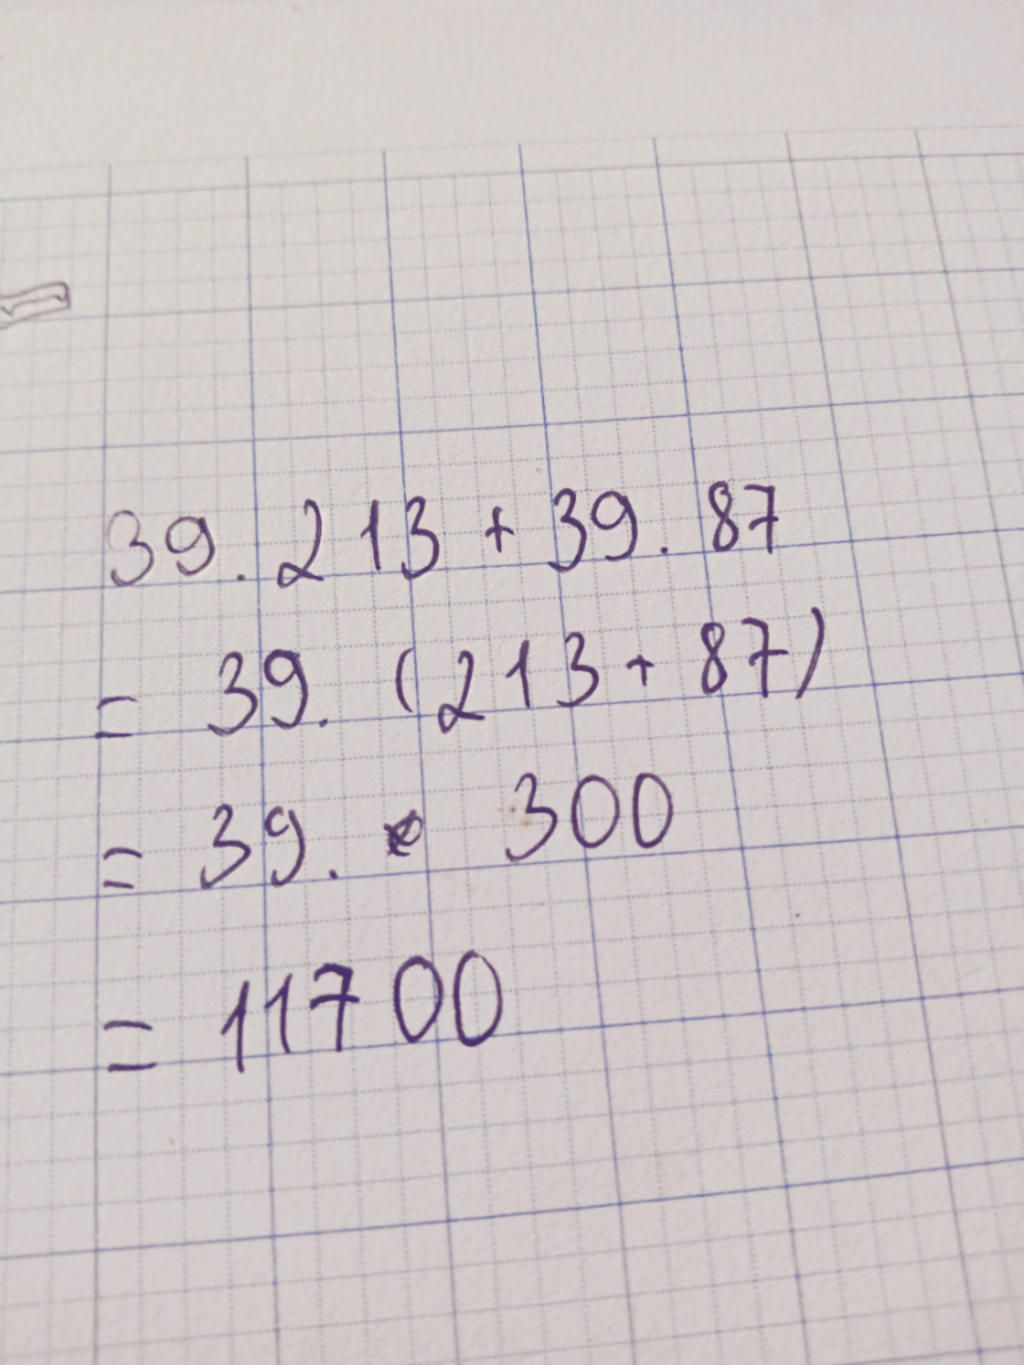 39.213 + 39.87
= 39. (213 + 87)
= 39. 300
= 11700